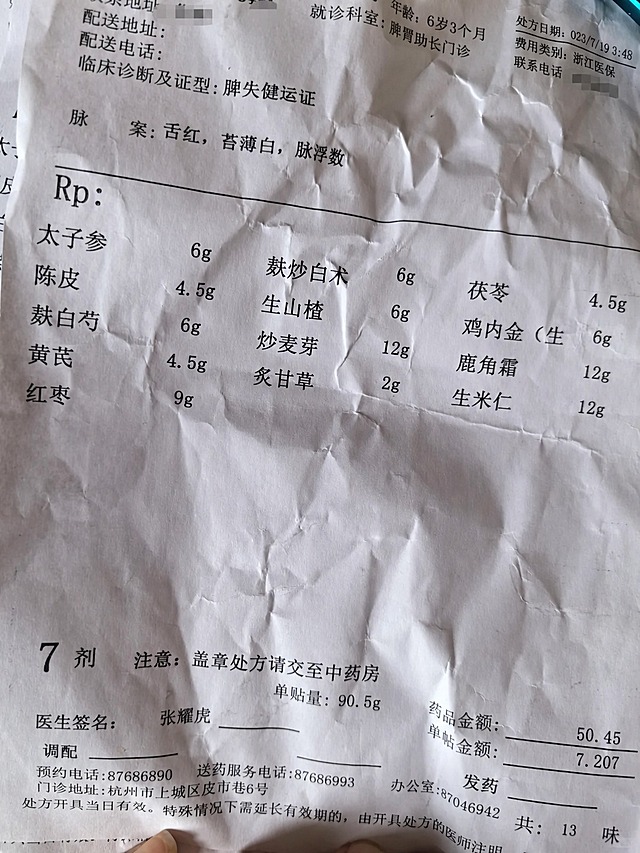 年龄: 6岁3个月
处方日期: 023/7/19 3:48
配送地址:
就诊科室: 脾胃助长门诊
费用类别: 浙江医保
配送电话:
联系电话
临床诊断及证型: 脾失健运证
脉 案: 舌红, 苔薄白, 脉浮数
Rp:
太子参 6g 麸炒白术 6g 茯苓 4.5g
陈皮 4.5g 生山楂 6g 鸡内金（生 6g
麸白芍 6g 炒麦芽 12g 鹿角霜 12g
黄芪 4.5g 炙甘草 2g 生米仁 12g
红枣 9g
7 剂 注意: 盖章处方请交至中药房
单贴量: 90.5g
药品金额: 50.45
医生签名: 张耀虎
单帖金额: 7.207
调配 发药
预约电话:87686890 送药服务电话:87686993 办公室:87046942
门诊地址: 杭州市上城区皮市巷6号
共: 13 味
处方开具当日有效。特殊情况下需延长有效期的, 由开具处方的医师注明